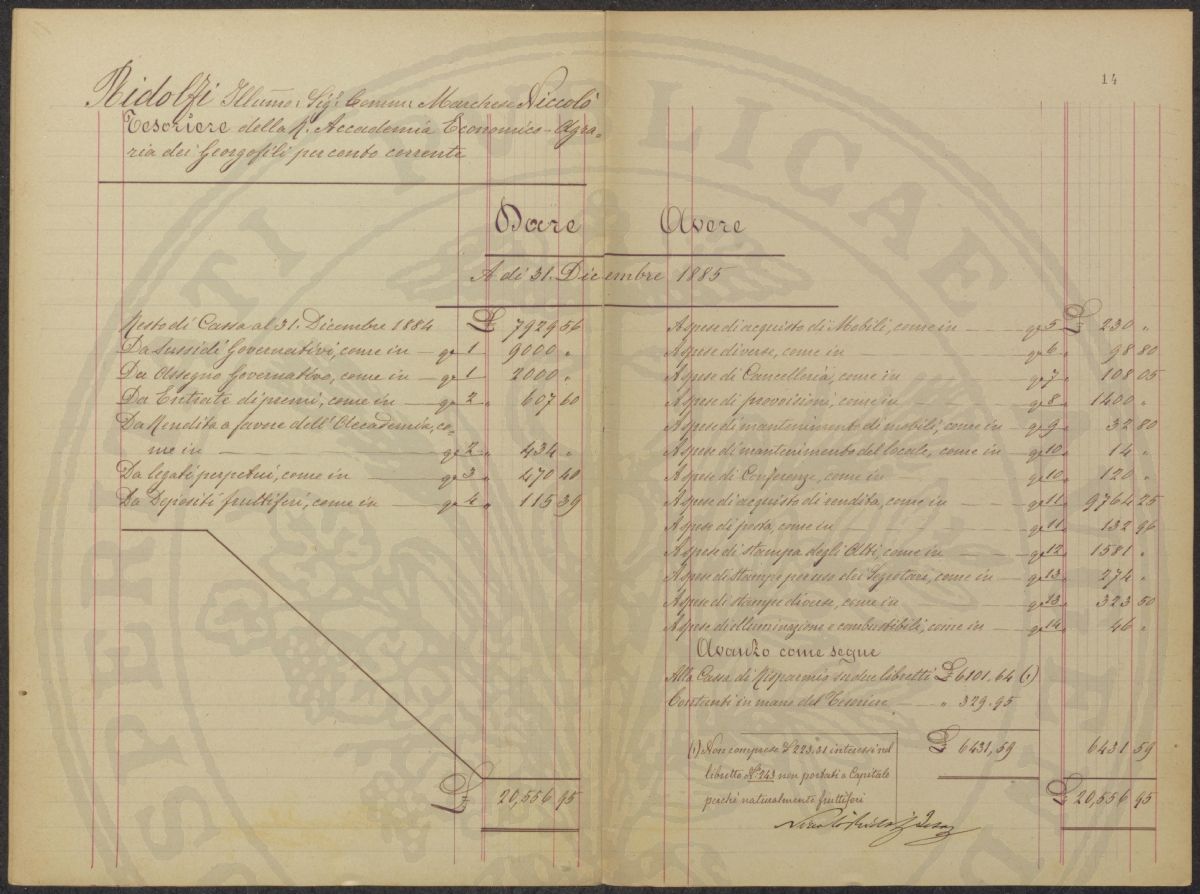 14
Ridolfi Illumo: Sigr: Comm: Marchese Niccolò
Tesoriere della R. Accademia Economico-Agra=
ria dei Georgofili per conto corrente
Dare Avere
A di 31. Dicembre 1885
Resto di Cassa al 31. Dicembre 1884 £ 7929 56
Da Sussidi Governativi, come in — ga 1 9000 "
Da Assegno Governativo, come in — ga 1 2000 "
Da Entrate di premi, come in — ga 2 " 607 60
Da Rendita a favore dell'Accademia, co-
me in — ga 2 " 434 "
Da legati perpetui, come in — ga 3 " 470 40
Da Depositi fruttiferi, come in — ga 4 " 115 39
£ 20,556 95
A spese di acquisto di Mobili, come in — ga 5 £ 230 "
A spese diverse, come in — ga 6 " 98 80
A spese di Cancelleria, come in — ga 7 " 108 05
A spese di provvisioni, come in — ga 8 " 1400 "
A spese di mantenimento di mobili, come in — ga 9 " 32 80
A spese di mantenimento del locale, come in — ga 10 " 14 "
A spese di Conferenze, come in — ga 10 " 120 "
A spese di acquisto di rendita, come in — ga 11 " 9764 25
A spese di posta, come in — ga 11 " 132 96
A spese di stampa degli Atti, come in — ga 12 " 1581 "
A spese di stampe per uso dei Segretari, come in — ga 13 " 274 "
A spese di stampe diverse, come in — ga 13 " 323 50
A spese di illuminazione e combustibili, come in — ga 14 " 46 "
Avanzo come segue
Alla Cassa di Risparmio su due libretti £ 6101.64 (1)
Contanti in mano del Tesoriere — " 329.95
£ 6431,59 6431 59
(1) Non comprese £ 223.31 interessi sul
libretto No. 243 non portati a Capitale
perchè naturalmente fruttiferi
£ 20,556 95
Niccolò Ridolfi
PUBLICAE